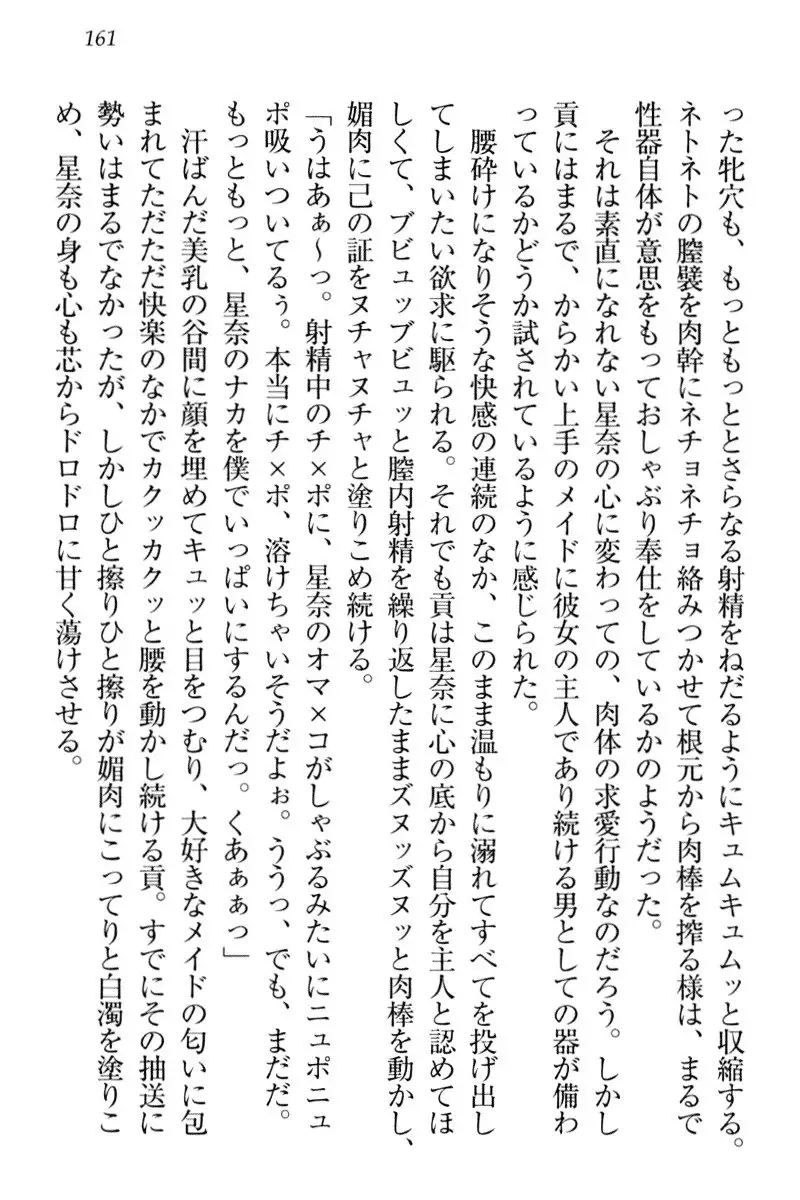 161
った牝穴も、もっともっととさらなる射精をねだるようにキュムキュムッと収縮する。
ネトネトの膣襞を肉幹にネチョネチョ絡みつかせて根元から肉棒を搾る様は、まるで
性器自体が意思をもっておしゃぶり奉仕をしているかのようだった。
それは素直になれない星奈の心に変わっての、肉体の求愛行動なのだろう。しかし
貢にはまるで、からかい上手のメイドに彼女の主人であり続ける男としての器が備わ
っているかどうか試されているように感じられた。
腰砕けになりそうな快感の連続のなか、このまま温もりに溺れてすべてを投げ出し
てしまいたい欲求に駆られる。それでも貢は星奈に心の底から自分を主人と認めてほ
しくて、ブビュッブビュッと膣内射精を繰り返したままズヌッズヌッと肉棒を動かし、
媚肉に己の証をヌチャヌチャと塗りこめ続ける。
「うはあぁ〜っ。射精中のチ×ポに、星奈のオマ×コがしゃぶるみたいにニュポニュ
ポ吸いついてるぅ。本当にチ×ポ、溶けちゃいそうだよぉ。ううっ、でも、まだだ。
もっともっと、星奈のナカを僕でいっぱいにするんだっ。くあぁぁっ」
汗ばんだ美乳の谷間に顔を埋めてキュッと目をつむり、大好きなメイドの匂いに包
まれてただただ快楽のなかでカクッカクッと腰を動かし続ける貢。すでにその抽送に
勢いはまるでなかったが、しかしひと擦りひと擦りが媚肉にこってりと白濁を塗りこ
め、星奈の身も心も芯からドロドロに甘く蕩けさせる。